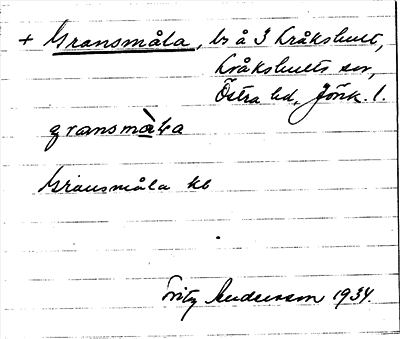 + Gransmåla, br å 3 Kråkshult,
Kråkshults sn,
Östra hd, Jönk. l.
gransmå̀la
Gransmåla kb
Fritz Andersson 1934.